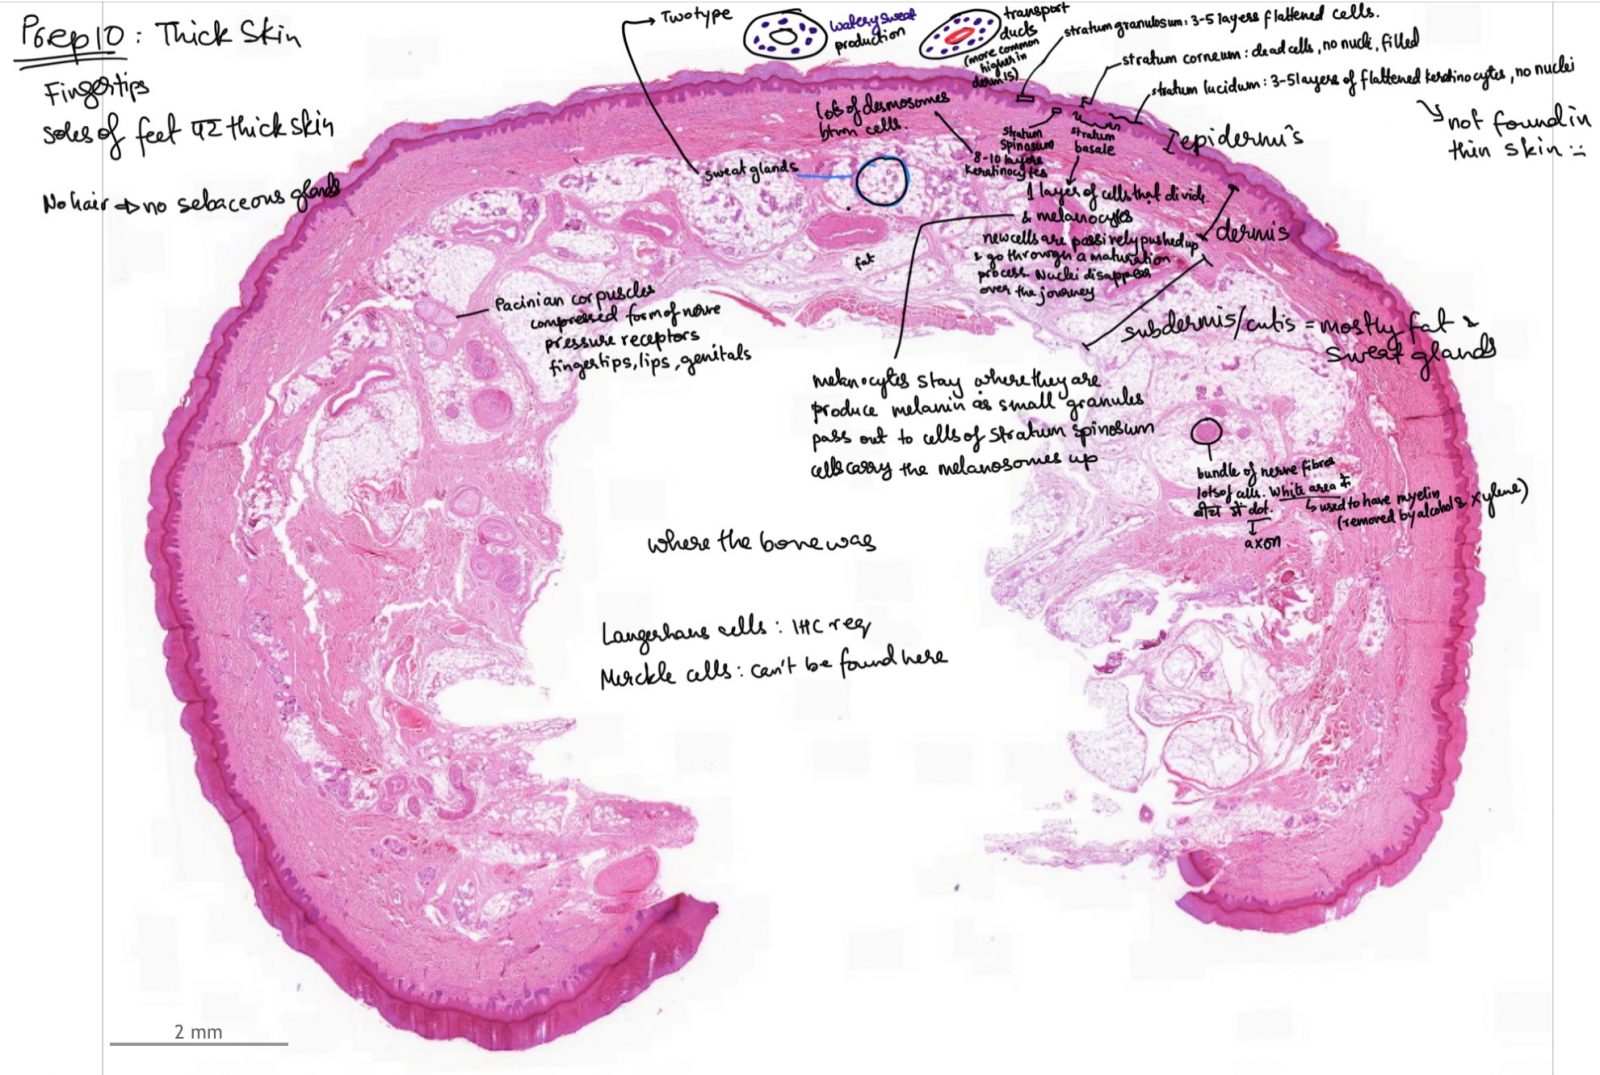 Prep 10: Thick Skin
Fingertips
soles of feet पर thick skin
No hair → no sebaceous glands
Two type
watery sweat
production
transport
ducts
(more common
higher in
dermis)
stratum granulosum: 3-5 layers flattened cells.
stratum corneum: dead cells, no nuclei, filled
stratum lucidum: 3-5 layers of flattened keratinocytes, no nuclei
↳ not found in
thin skin
lots of desmosomes
btwn cells.
sweat glands
Stratum
Spinosum
8-10 layers
keratinocytes
stratum
basale
I epidermis
1 layer of cells that divide
& melanocytes
new cells are passively pushed up
& go through a maturation
process. Nuclei disappear
over the journey
dermis
fat
subdermis/cutis = mostly fat &
sweat glands
Pacinian corpuscles
compressed form of nerve
pressure receptors
fingertips, lips, genitals
melanocytes stay where they are
produce melanin as small granules
pass out to cells of Stratum spinosum
cells carry the melanosomes up
bundle of nerve fibres
lots of cells. White area
dot.
↳ used to have myelin
(removed by alcohol & xylene)
axon
where the bone was
Langerhans cells: IHC req
Merckle cells: can't be found here
2 mm